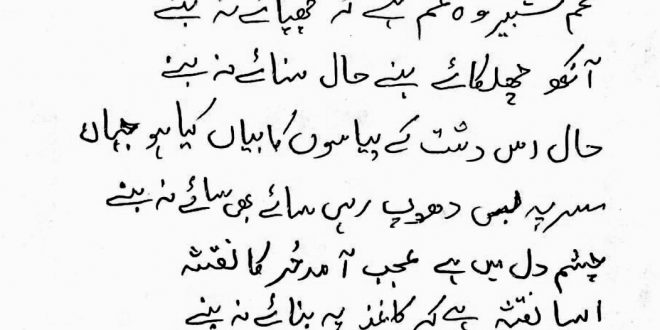 غم شبیر وہ غم ہے کہ چھپائے نہ بنے
آنکھ چھلکائے بنے حال سنائے نہ بنے
حال اس دشت کے پیاسوں کا بیاں کیا ہو جہاں
سر پہ دھوپ رہی سائے بھی سائے نہ بنے
چشم دل میں ہے عجب آمد حُر کا نقشہ
ایسا نقشہ ہے کہ کاغذ پہ بنائے نہ بنے